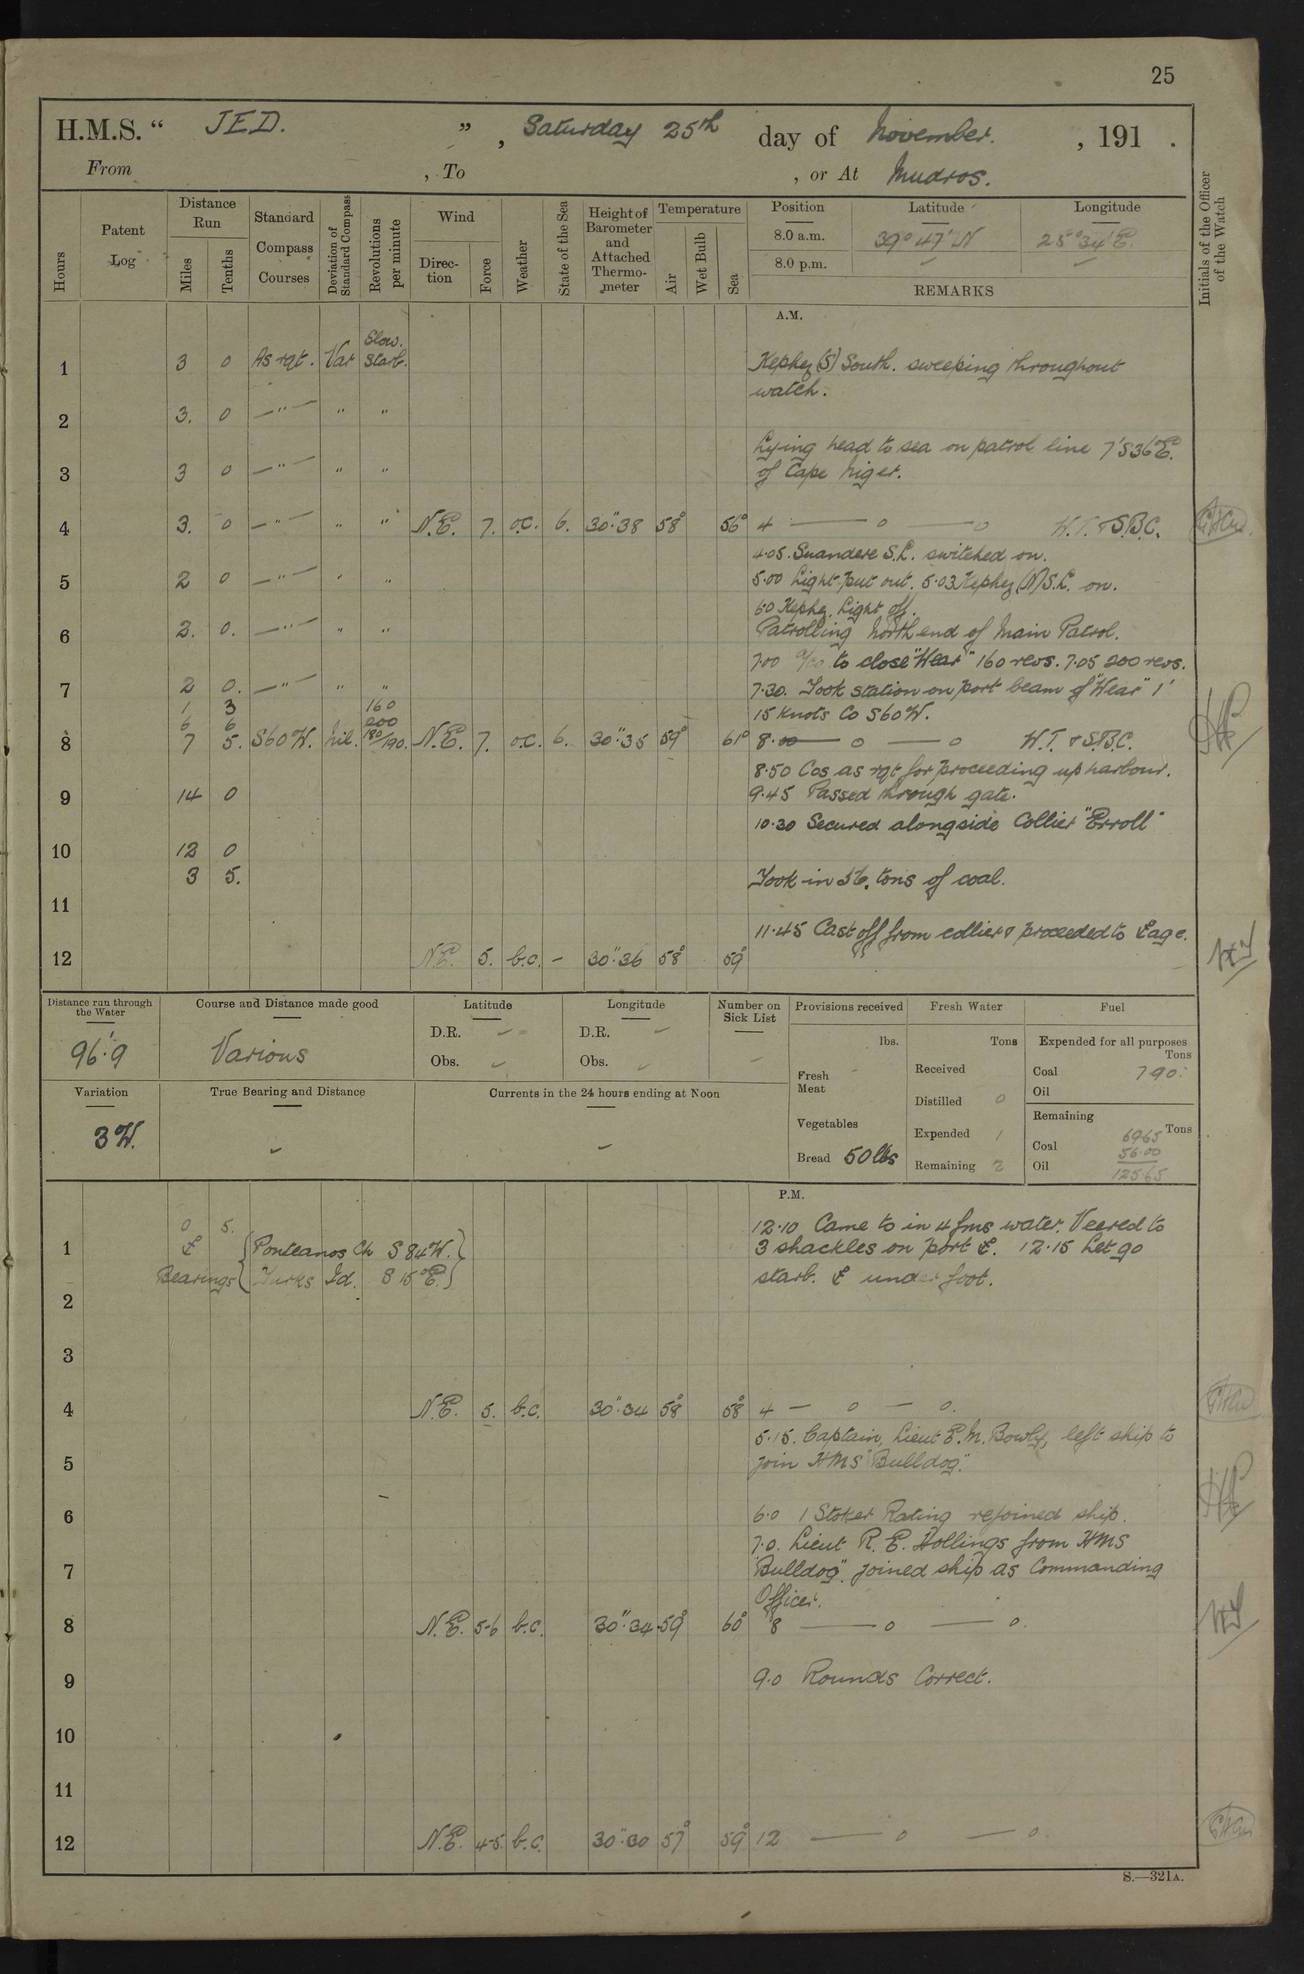 25
H.M.S. " JED. " , Saturday 25th day of November. , 191 .
From , To , or At Mudros.
Hours
Patent Log
Distance Run
Miles
Tenths
Standard Compass Courses
Deviation of Standard Compass
Revolutions per minute
Wind
Direction
Force
Weather
State of the Sea
Height of Barometer and Attached Thermometer
Temperature
Air
Wet Bulb
Sea
Position Latitude Longitude
8.0 a.m. 39° 47' N 25° 34' E.
8.0 p.m. – –
REMARKS
Initials of the Officer of the Watch
A.M.
Slow.
1 3 0 As rqt. Var Starb. Kephez (S) South. sweeping throughout
watch.
2 3. 0 –"– " "
Lying head to sea on patrol line 7' S36°E.
3 3 0 –"– " " of Cape Niger.
4 3. 0 –"– " " N.E. 7. o.c. 6. 30".38 58° 56° 4 — o — o W.T. & S.B.C.
4.05. Suandere S.L. switched on.
5 2 0 –"– " " 5.00 Light put out. 5.03 Kephez (N) S.L. on.
6.0 Kephez. Light off.
6 2. 0. –"– " " Patrolling North end of Main Patrol.
7.00 to close "Wear" 160 revs. 7.05 200 revs.
7 2 0. –"– " " 7.30. Took station on port beam of "Wear" 1'
1 3 160 15 knots Co S60W.
6 6 200
8 7 5. S60W. Nil. 180/190. N.E. 7. o.c. 6. 30".35 59° 61° 8.00 — o — o W.T. & S.B.C.
8.50 Cos as rqt for proceeding up harbour.
9 14 0 9.45 Passed through gate.
10.30 Secured alongside Collier "Erroll"
10 12 0
3 5. Took in 56. tons of coal.
11
11.45 Cast off from collier & proceeded to ⚓age.
12 N.E. 5. b.c. – 30".36 58° 59°
Distance run through the Water
96.'9
Course and Distance made good
Various
Latitude
D.R. –
Obs. –
Longitude
D.R. –
Obs. –
Number on Sick List
–
Provisions received
lbs.
Fresh Meat -
Vegetables
Bread 50 lbs
Fresh Water
Tons
Received
Distilled 0
Expended 1
Remaining 2
Fuel
Expended for all purposes
Tons
Coal 790.
Oil
Remaining
Tons
Coal 6965
56.00
Oil 125.65
Variation
3W.
True Bearing and Distance
–
Currents in the 24 hours ending at Noon
–
P.M.
0 5. 12.10 Came to in 4 fms water. Veered to
1 ⚓ { Ponteanos Ch S 84W. } 3 shackles on port ⚓. 12.15 Let go
Bearings { Turks Id. S 15°E. } starb. ⚓ under foot.
2
3
4 N.E. 5. b.c. 30".34 58° 58° 4 – o – o.
5.15. Captain, Lieut E.M. Bowly, left ship to
5 join HMS "Bulldog".
6 6.0 1 Stoker Rating rejoined ship.
7.0. Lieut R. E. Hollings from HMS
7 "Bulldog". joined ship as Commanding
Officer.
8 N.E. 5-6 b.c. 30".34 59° 60° 8 — o — o.
9 9.0 Rounds Correct.
10
11
12 N.E. 4-5. b.c. 30".30 57° 59° 12 — o — o.
S.—321A.